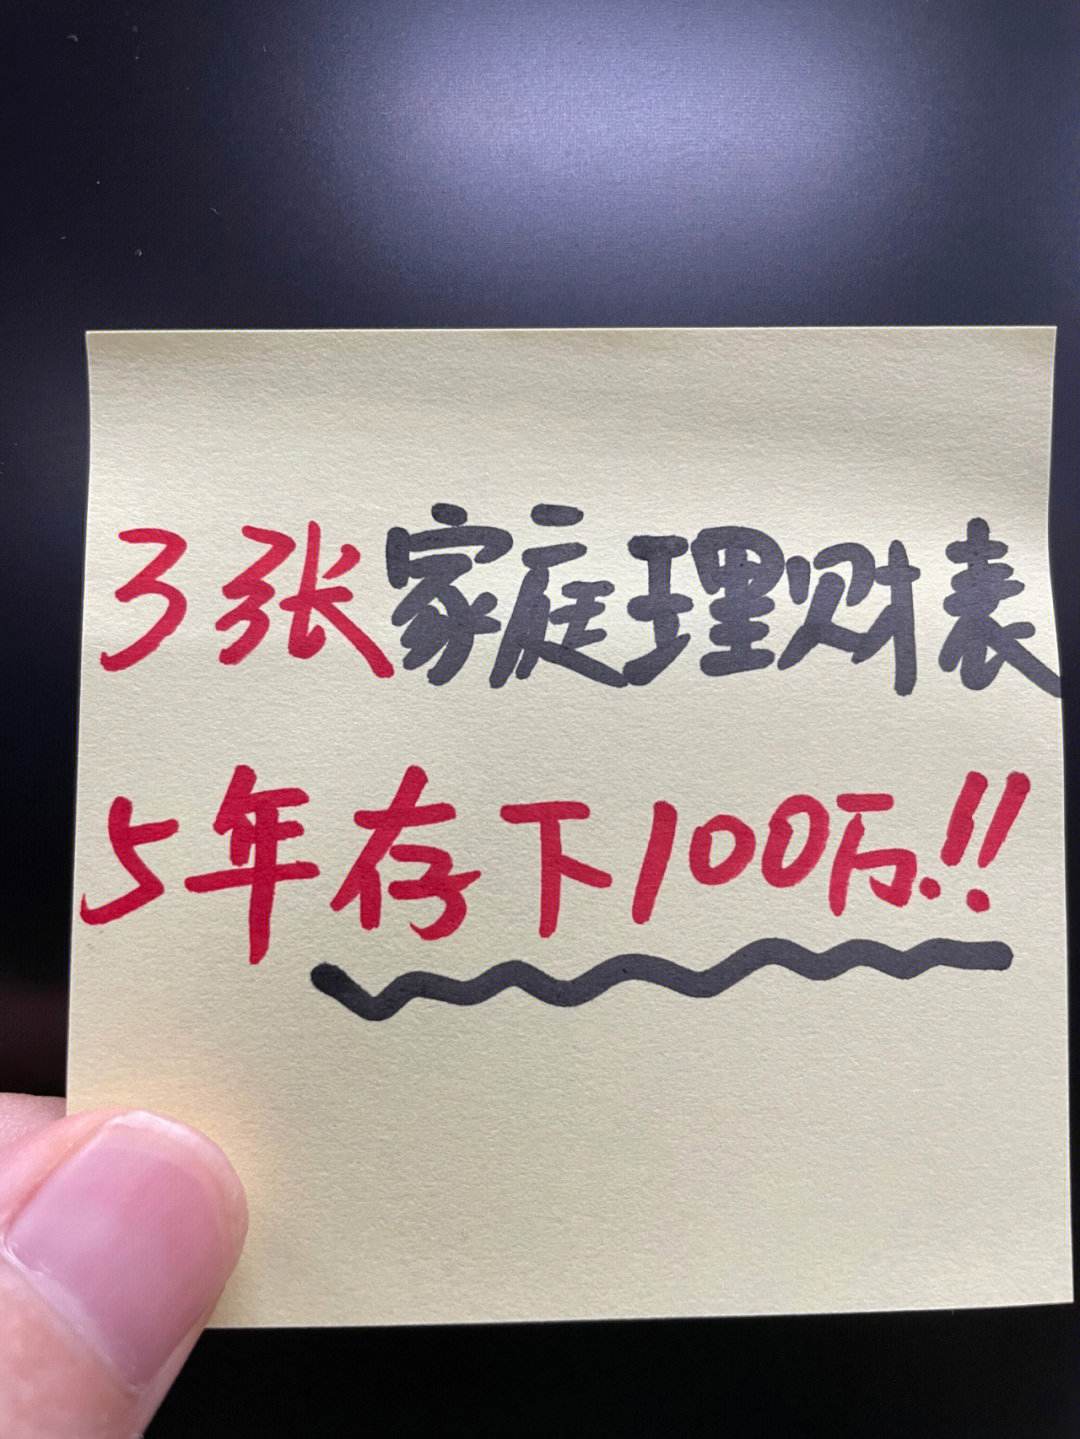 3张家庭理财表
5年存下100万!!